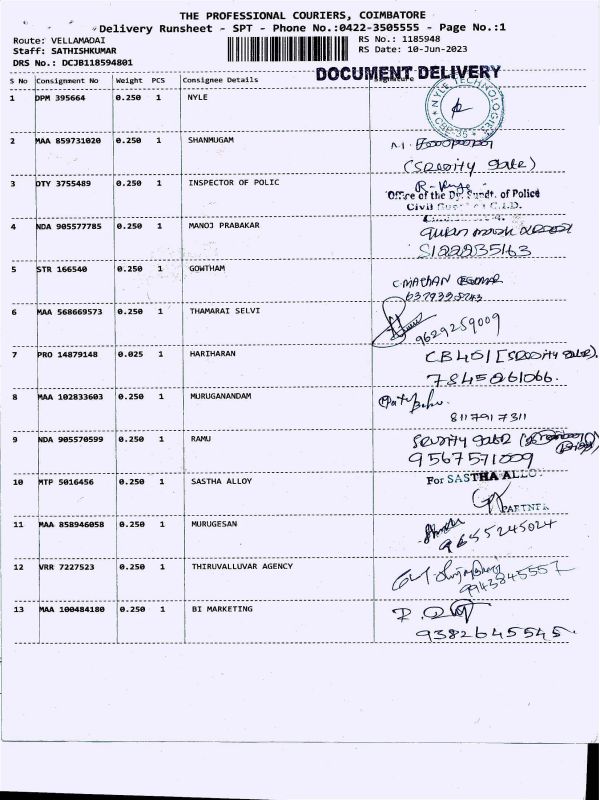 THE PROFESSIONAL COURIERS, COIMBATORE
Delivery Runsheet - SPT - Phone No.:0422-3505555 - Page No.:1
Route: VELLAMADAI
Staff: SATHISHKUMAR
DRS No.: DCJB118594801
RS No.: 1185948
RS Date: 10-Jun-2023
DOCUMENT DELIVERY
S No Consignment No Weight PCS Consignee Details Signature
1 DPM 395664 0.250 1 NYLE
NYLE TECHNOLOGIES CBE-35
2 MAA 859731020 0.250 1 SHANMUGAM
3 DTY 3755489 0.250 1 INSPECTOR OF POLIC
Office of the Dy. Supdt. of Police
Civil C.I.D.
4 NDA 905577785 0.250 1 MANOJ PRABAKAR
5 STR 166540 0.250 1 GOWTHAM
6 MAA 568669573 0.250 1 THAMARAI SELVI
9629259009
7 PRO 14879148 0.025 1 HARIHARAN
CB401
7845061066.
8 MAA 102833603 0.250 1 MURUGANANDAM
8117917311
9 NDA 905570599 0.250 1 RAMU
9567571009
10 MTP 5016456 0.250 1 SASTHA ALLOY
For SASTHA ALLO
PARTNER
11 MAA 858946058 0.250 1 MURUGESAN
9655245024
12 VRR 7227523 0.250 1 THIRUVALLUVAR AGENCY
9943845557
13 MAA 100484180 0.250 1 BI MARKETING
9382645545